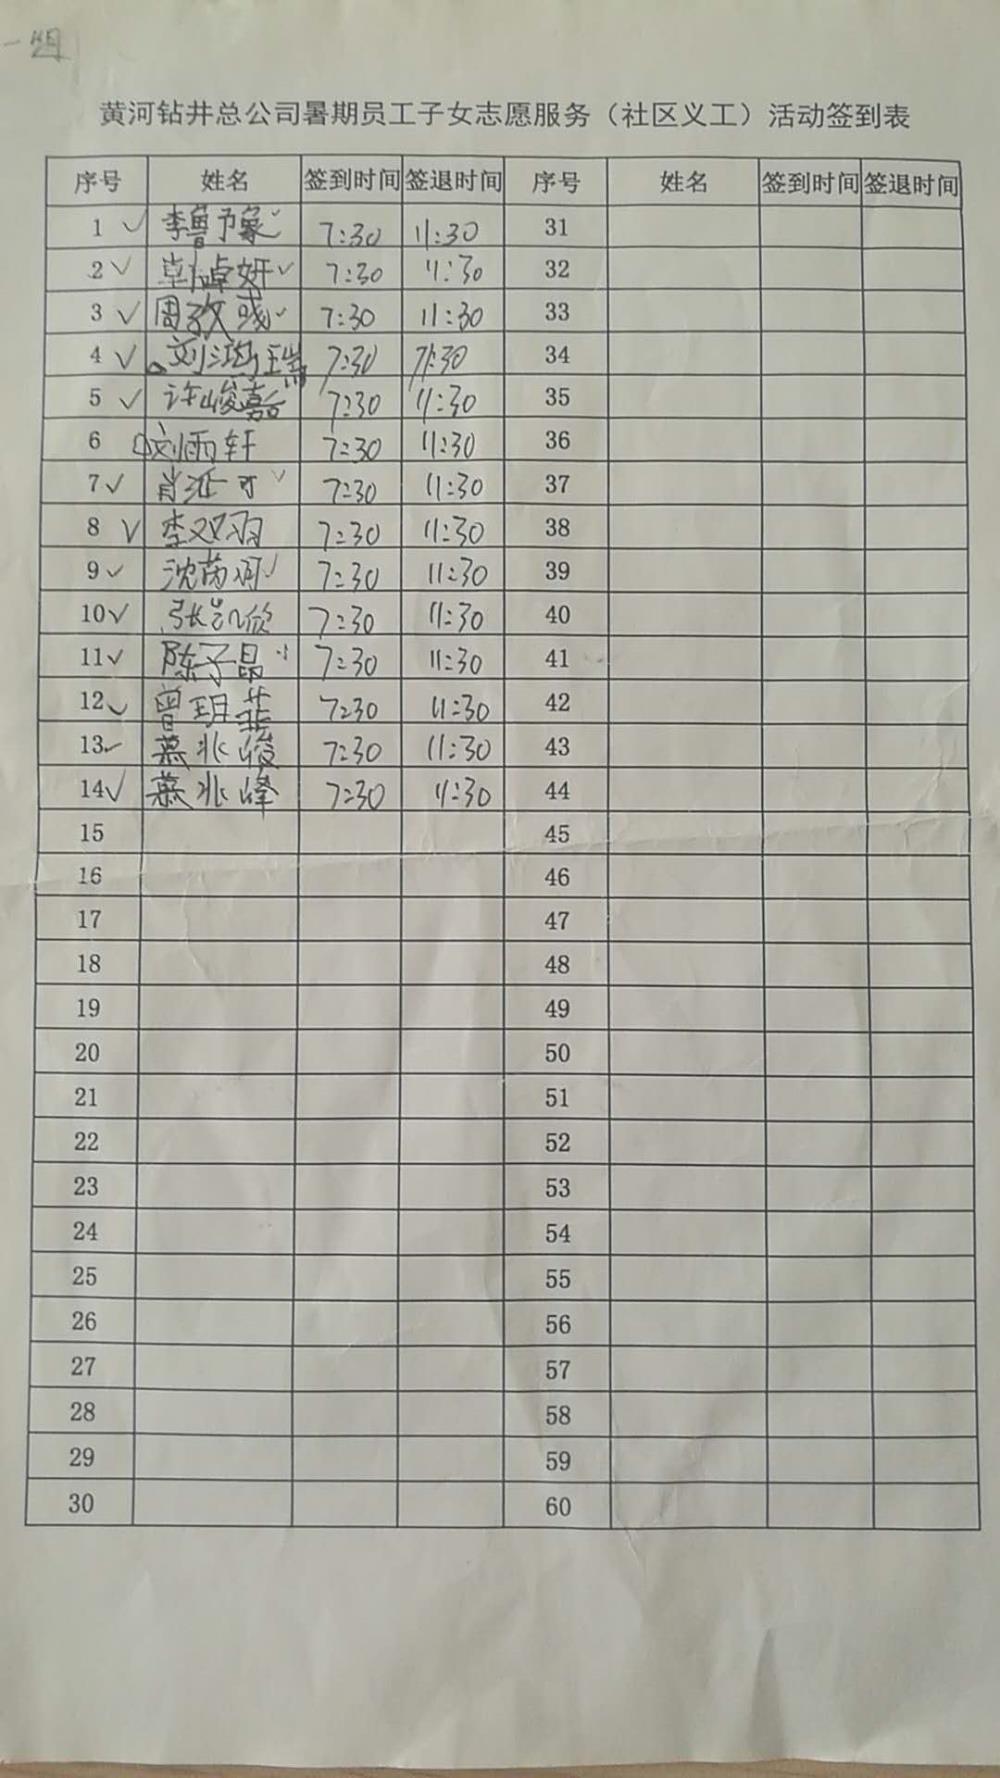 一组
黄河钻井总公司暑期员工子女志愿服务（社区义工）活动签到表
序号 姓名 签到时间 签退时间 序号 姓名 签到时间 签退时间
1 ✓ 李鲁予豪 ✓ 7:30 11:30 31
2 ✓ 卓妍 ✓ 7:30 11:30 32
3 ✓ 周孜彧 ✓ 7:30 11:30 33
4 ✓ 刘鸿瑞 7:30 11:30 34
5 ✓ 许峻嘉 7:30 11:30 35
6 刘雨轩 7:30 11:30 36
7 ✓ 肖涎可 ✓ 7:30 11:30 37
8 ✓ 李双羽 7:30 11:30 38
9 ✓ 沈芮冴 ✓ 7:30 11:30 39
10 ✓ 张凯欣 7:30 11:30 40
11 ✓ 陈子晶 7:30 11:30 41
12 ✓ 曾玥菲 7:30 11:30 42
13 ✓ 慕兆峻 7:30 11:30 43
14 ✓ 慕兆峰 7:30 11:30 44
15 45
16 46
17 47
18 48
19 49
20 50
21 51
22 52
23 53
24 54
25 55
26 56
27 57
28 58
29 59
30 60